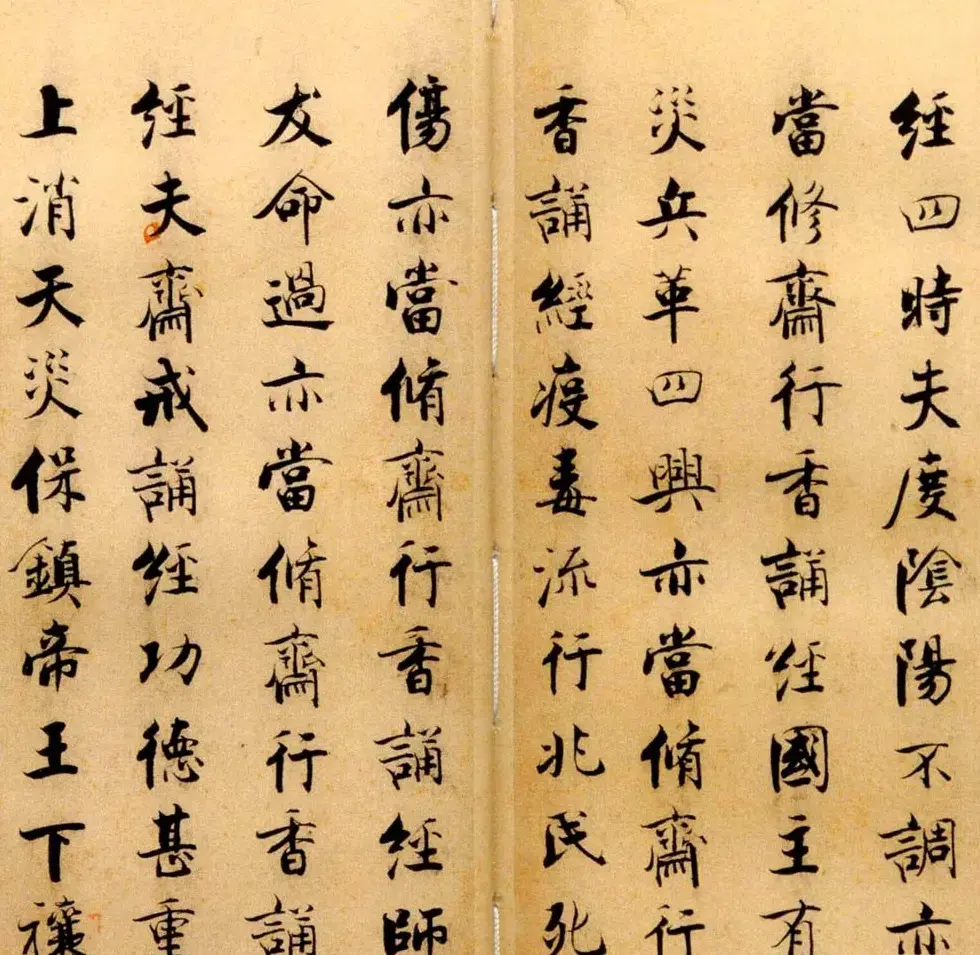 經四時夫度陰陽不調亦
當修齋行香誦經國主有
災兵革四興亦當脩齋行
香誦經疫毒流行兆民死
傷亦當脩齋行香誦經師
友命過亦當脩齋行香誦
經夫齋戒誦經功德甚重
上消天災保鎮帝王下禳